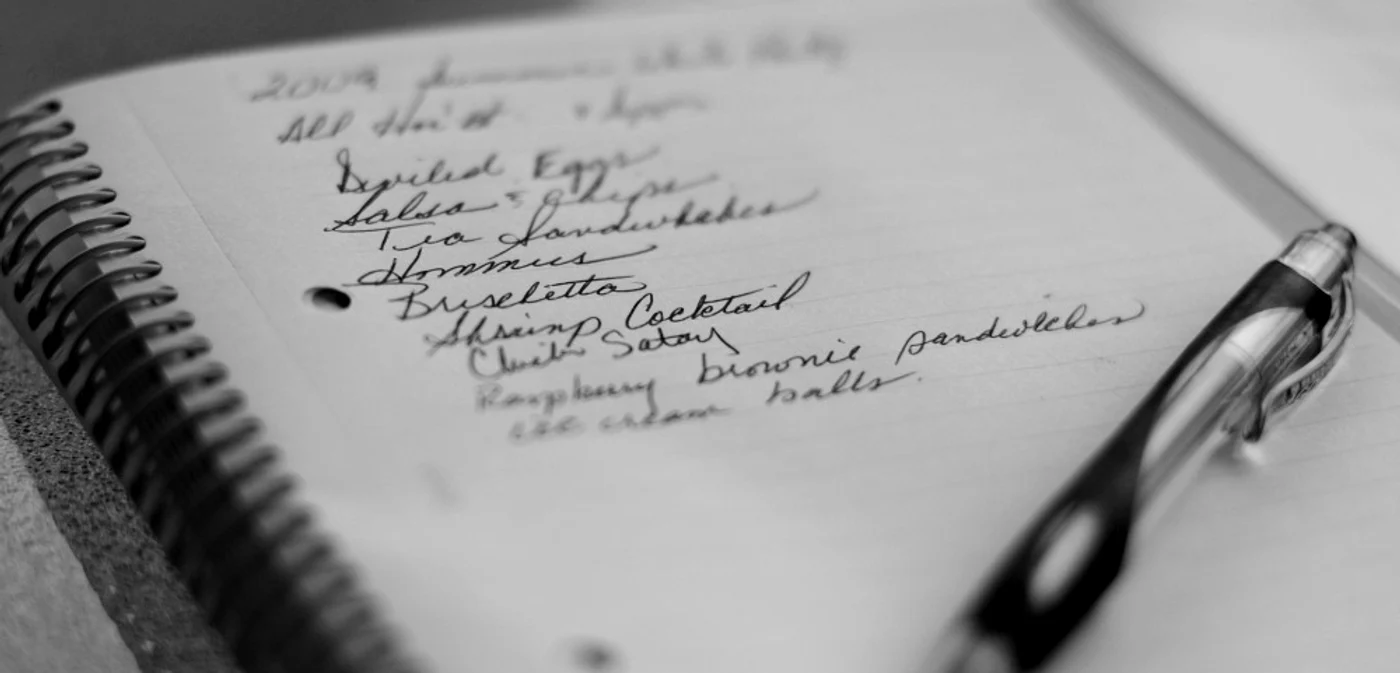 2009 Summer White Party
All Hor'st
Deviled Eggs
Salsa & Chips
Tea Sandwhches
Hommus
Bruschetta
Shrimp Cocktail
Satay
Raspberry brownie sandwiches
ice cream balls.